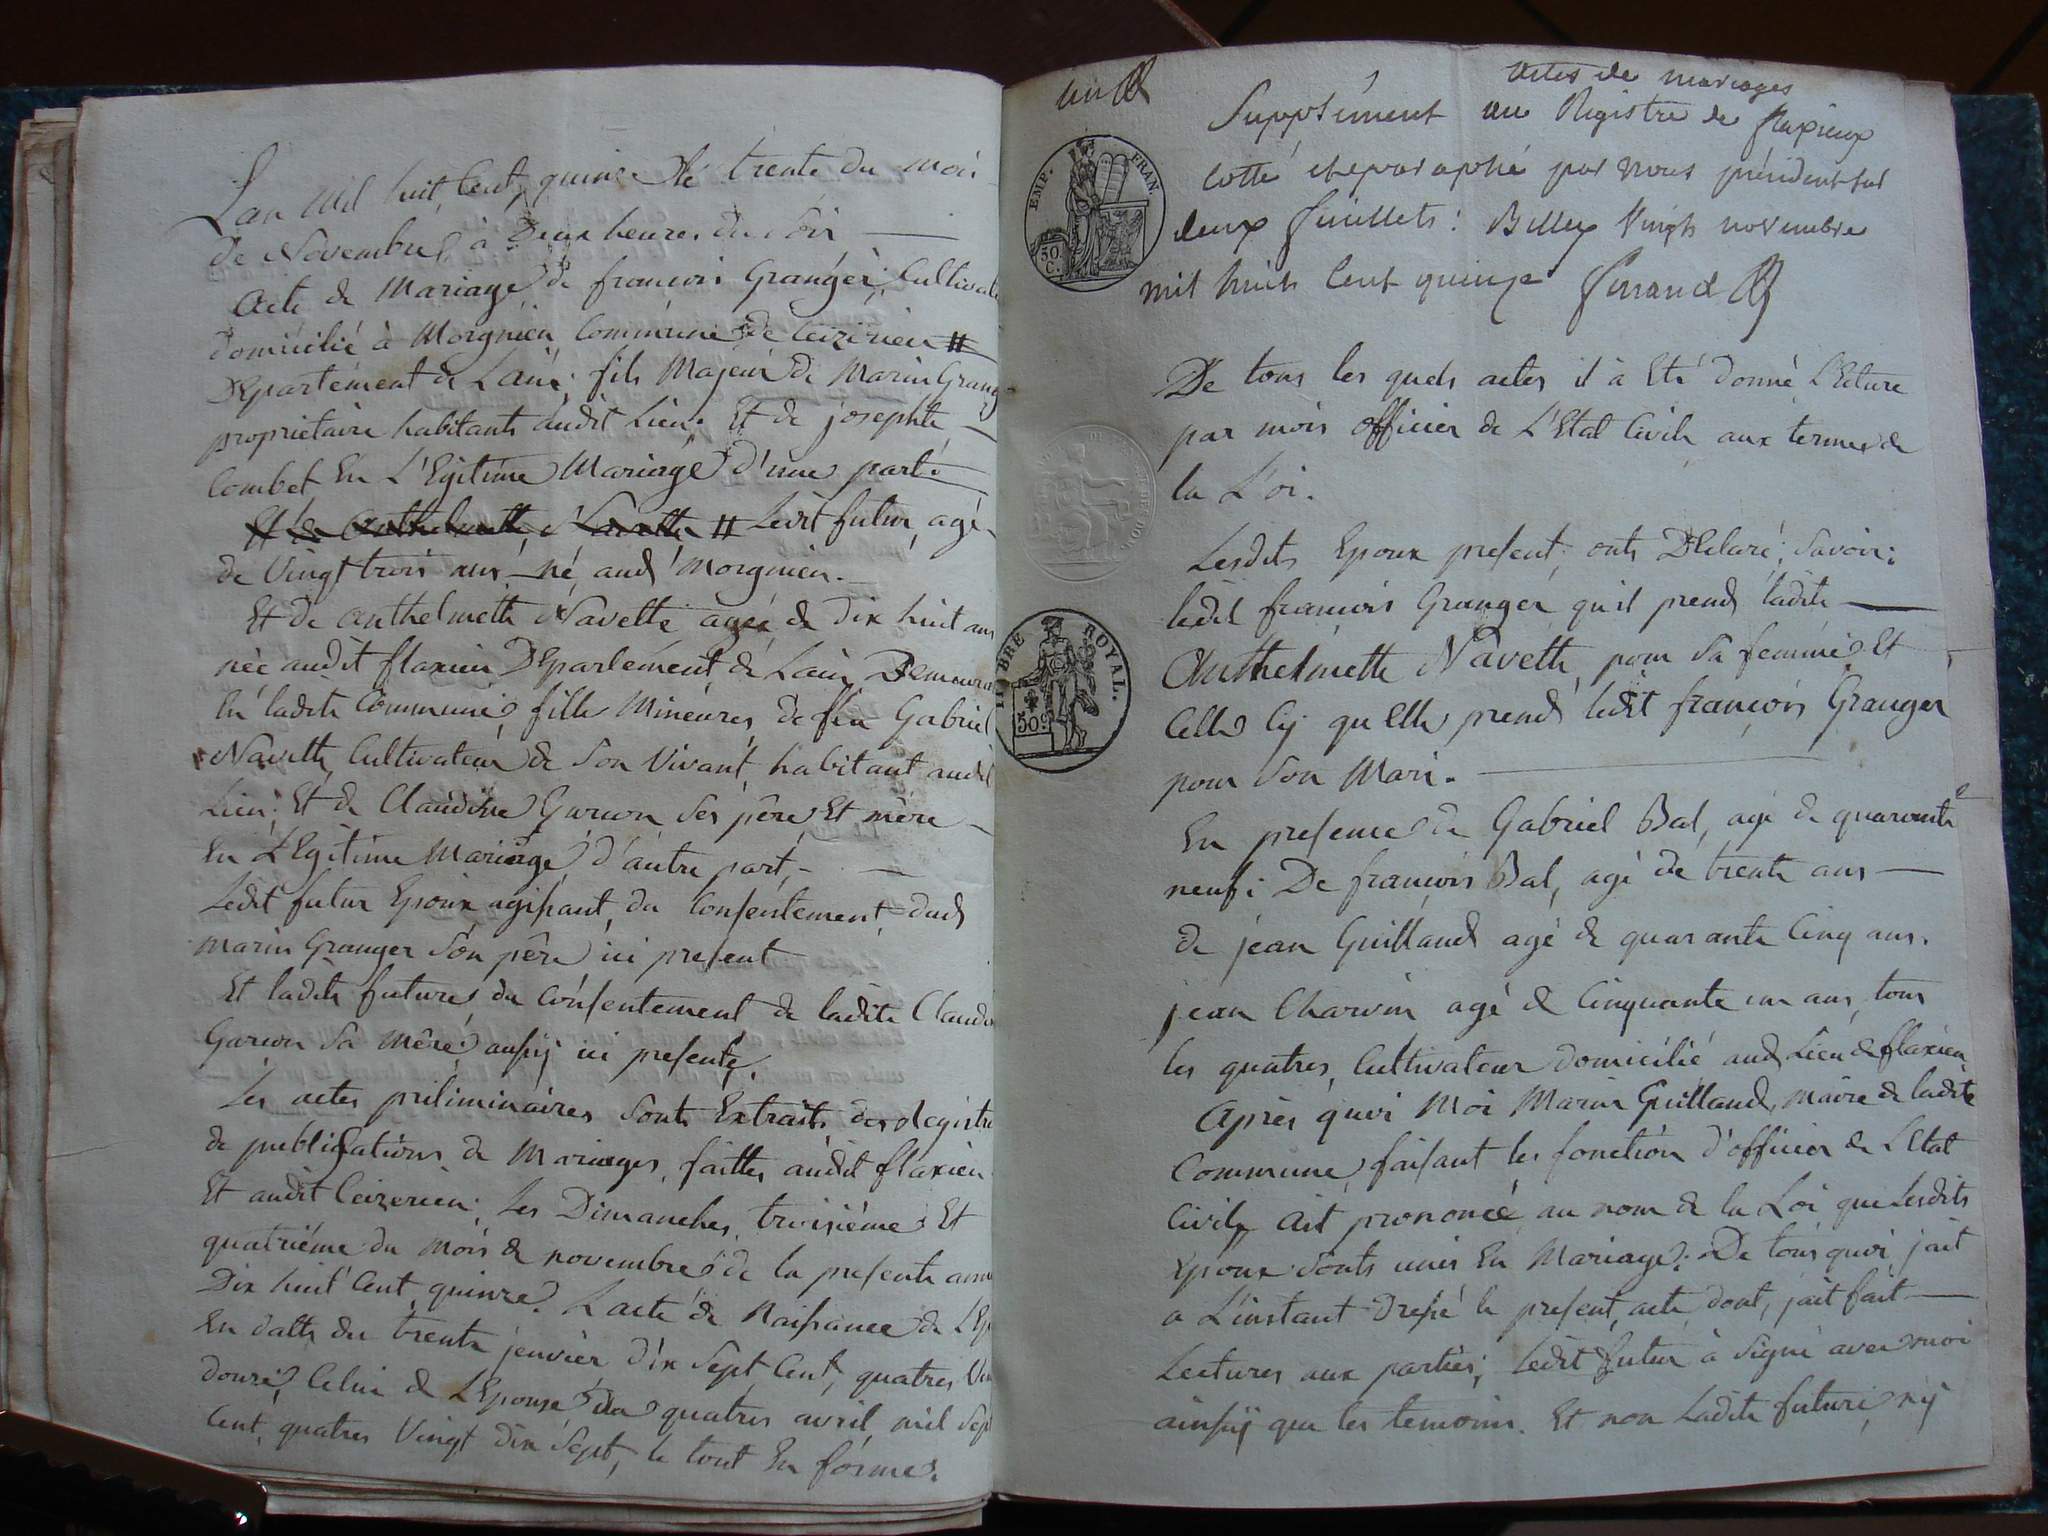 Lan mil huit Cent, quinze le trente du mois
de Novembre, à Deux heures du Soir
Acte de Mariage de françois Granger, Cultivat
domicilié à Morgnieu Commune de Ceizerieu #
Département de Lain, fils Majeur de Marin Grang
proprietaire habitants audit Lieu. Et de josephte
Combet En L'Egitime Mariage d'une parte
Et de Anthelmette Navette # Ledit futur, agé
de Vingt trois ans né aud Morgnieu.
Et De Anthelmette Navette agée de Dix huit ans
née audit flaxieu Département de Lain Demeura
En ladite Commune, fille Mineures, de feu Gabriel
Navette Cultivateur de Son Vivant, habitant audit
Lieu; Et de Claudine Garcon Ses père Et mère
En L'Egitime Mariage, d'autre part,
Ledit futur Epoux agissant, du Consentement, dud
Marin Granger Son père ici present
Et ladite future, du Consentement de ladite Claudi
Garcon Sa Mère, aussy ici presente,
Les actes préliminaires Sonts Extraits des Registre
de publications de Mariages, faittes audit flaxieu
Et audit Ceizerieu; Les Dimanches, troisième Et
quatrième du mois de novembre de la presente anné
Dix huit Cent, quinze. Lacte de Naissance de L'Ep
En datte du trente jenvier, dix Sept Cent, quatres Vin
douze, Celui de L'Epouse du quatres avril, mil Sept
Cent, quatres Vingt dix Sept, le tout En forme.
Actes de mariages
Supplément au Registre de flaxieux
Cotté et paraphé par Nous président Sur
deux feuillets: Belley Vingt novembre
mil huit Cent quinze
EMP. FRAN.
50 C.
TIMBRE ROYAL.
50c
De tous les quels actes il à Eté donné L'Ecture
par mois Officier de L'Etat Civile aux termes de
la L'oi.
Lesdits Epoux present, onts Déclaré; Savoir:
Ledit francois Granger qu'il prend ladite
Anthelmette Navette, pour Sa femme Et
Celle Cy qu'Elle prend ledit françois Granger
pour Son Mari.
En presence de Gabriel Bal, agé de quarante
neuf: De françois Bal, agé de trente ans
de jean Guilland agé de quarante Cinq ans.
jean Charvin agé de Cinquante un ans, tous
les quatres, Cultivateur domicilié aud Lieu de flaxieu
Après quoi Moi Marin Guilland, Maire de ladite
Commune, faisant les fonction d'officier de L'Etat
Civile, Ait prononcé au nom de la Loi que Lesdits
Epoux Sonts unis En Mariage; De tous quoi, jait
a L'instant Dressé le present, acte, dont, jait fait
Lectures aux parties; Ledit futur à Signé avec moi
ainsÿ que les temoins. Et non Ladite future, ny